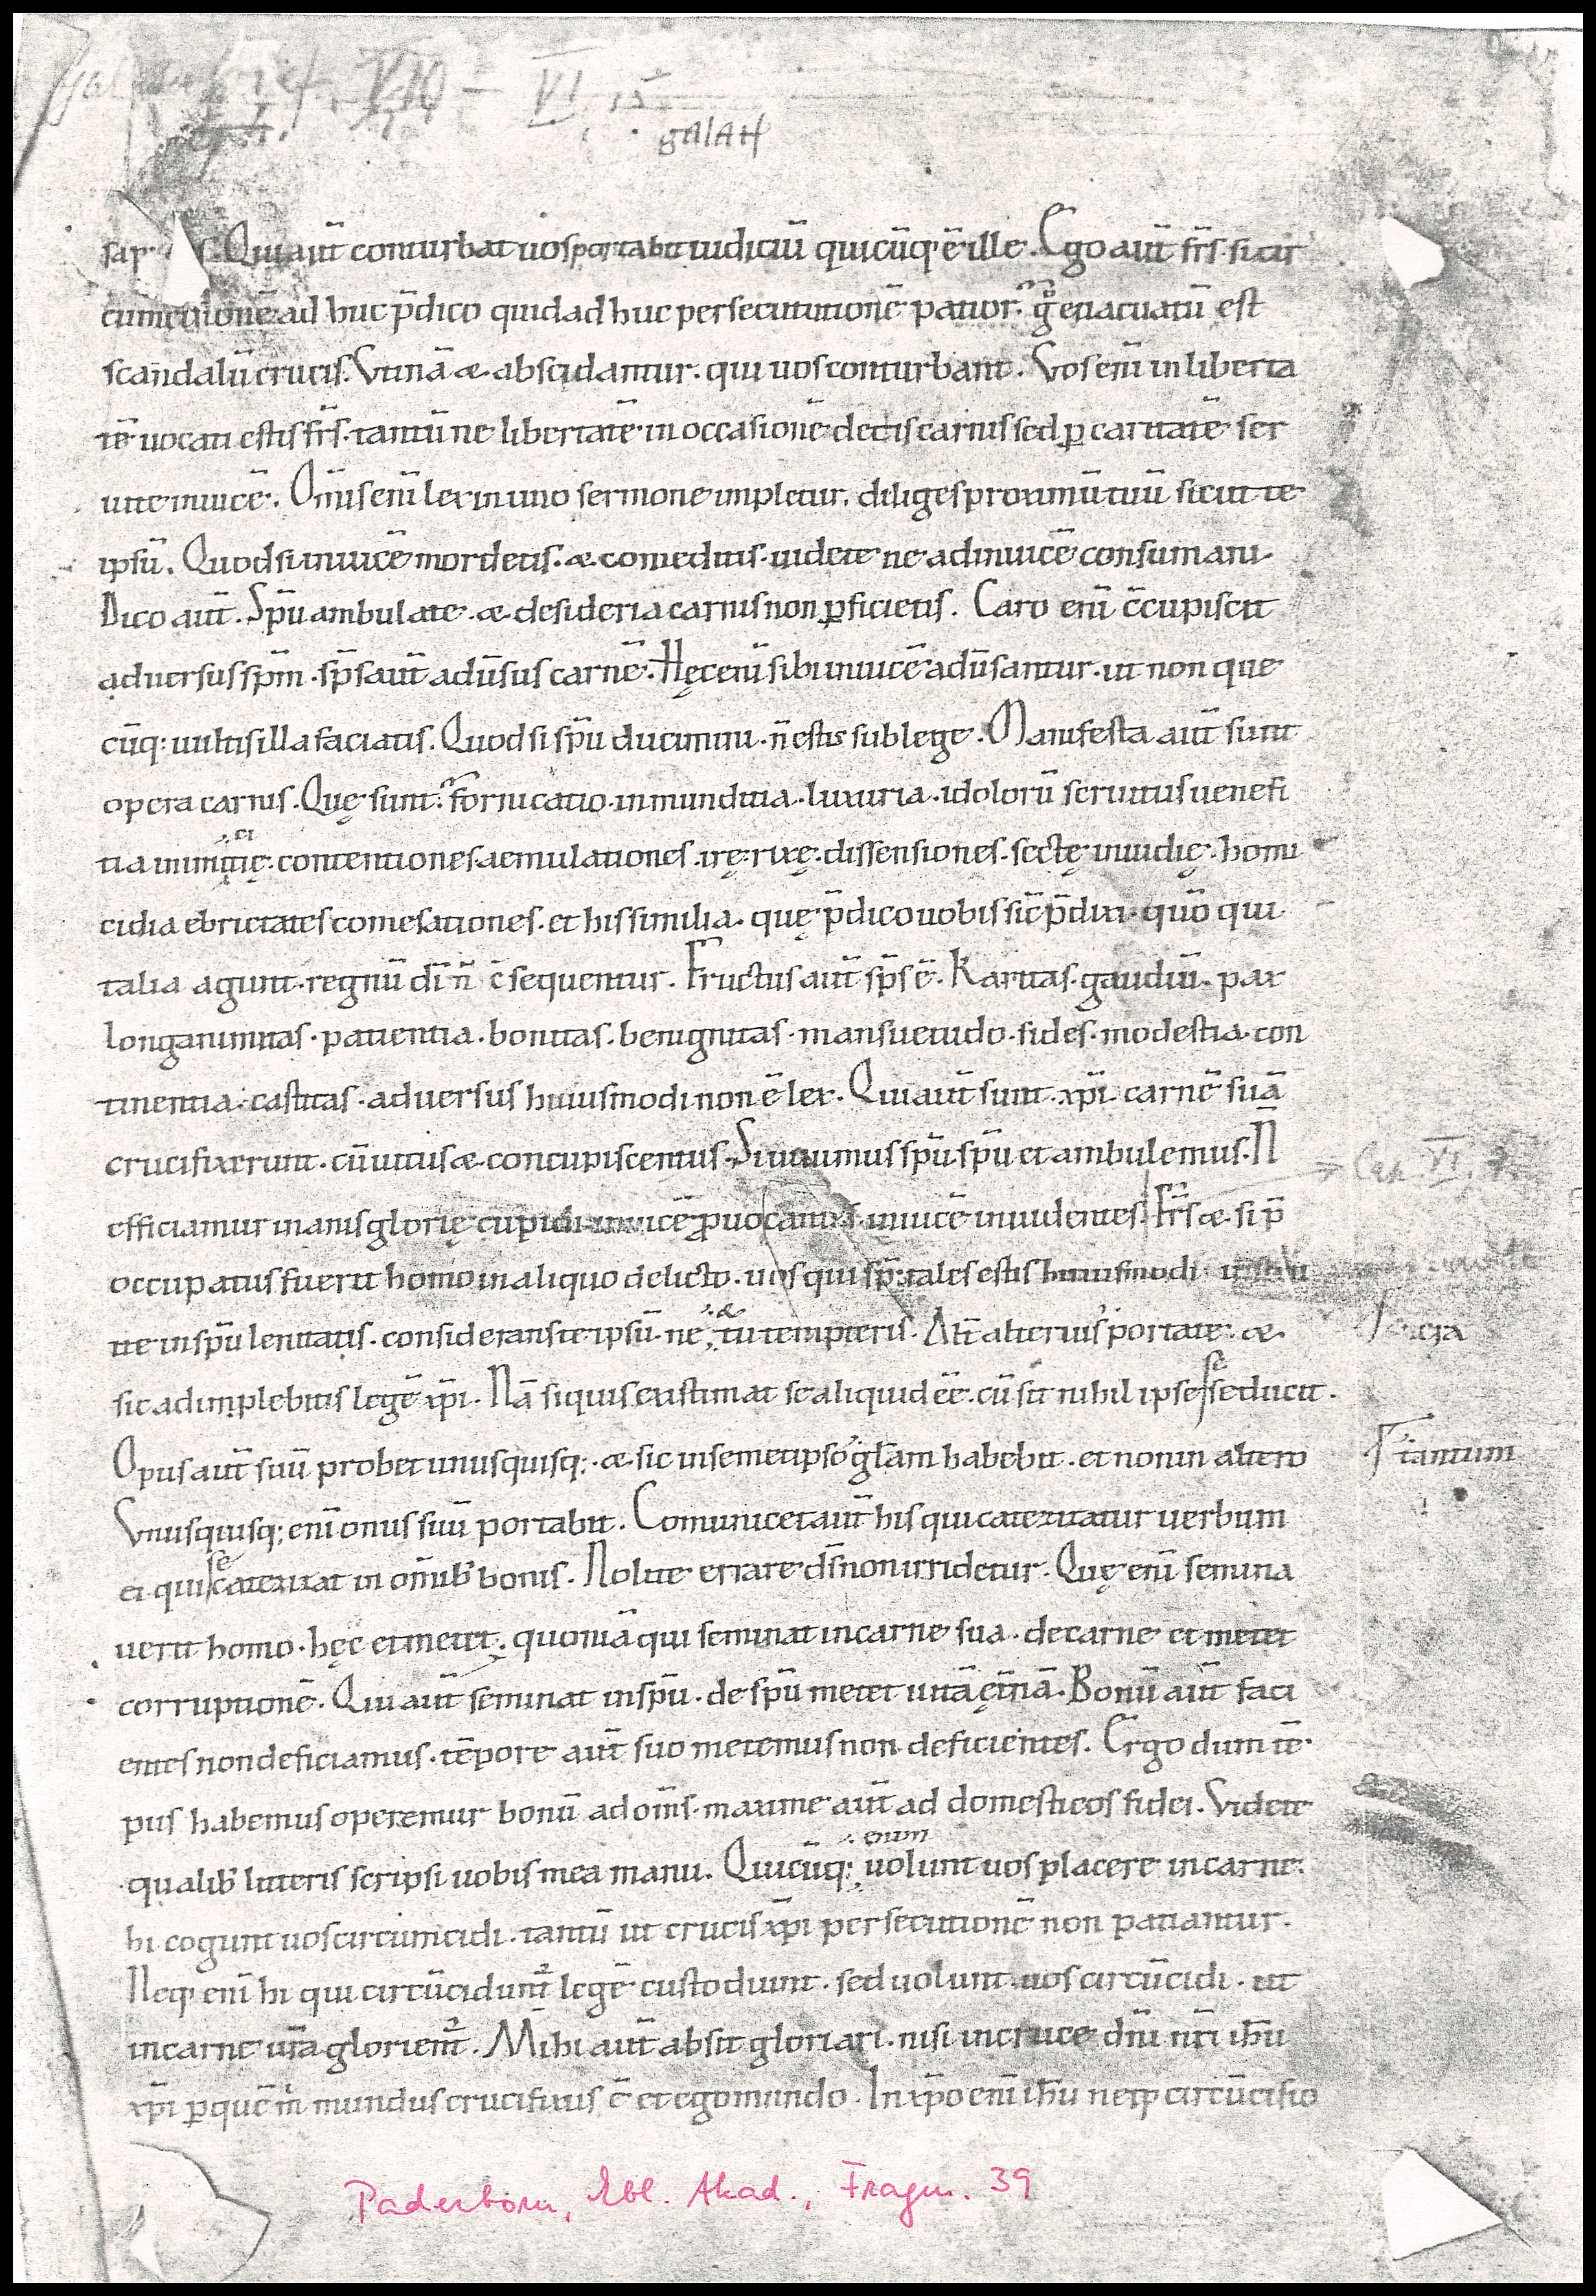 V,10 – VI, 15
GALAT
sap s. Qui aut̄ conturbat uos portabit iudiciū quicūq; ē ille. Ego aut̄ fr̄s si cir
cumcisionē ad huc p̄dico quid ad huc persecututionē patior. g° euacuatū est
scandalū crucis. Vtinā & abscidantur. qui uos conturbant. Vos eni̅ in liberta
tē uocati estis fr̄s. tantū ne libertatē in occasionē detis carnis sed ꝑ caritatē ser
uite inuicē. Om̄is eni̅ lex in uno sermone impletur. diliges proximū tuū sicut te
ipsū. Quod si inuicē mordetis. & comeditis. uidete ne ad inuicē consumami.
Dico aut̄. Sp̄u ambulate. & desideria carnis non ꝑficietis. Caro eni̅ c̄cupiscit
aduersus sp̄m. sp̄s aut̄ adūsus carnē. Hęc eni̅ sibi inuicē adūsantur. ut non que
cūq: uultis illa faciatis. Quod si sp̄u ducimini. n̄ estis sub lege. Manifesta aut̄ sunt
opera carnis. Quę sunt. fornicatio. inmunditia. luxuria. idolorū seruitus uenefi
ci
tia inimitię. contentiones aemulationes. irę. rixę. dissensiones. sectę inuidię. homi
cidia ebrietates comesationes. et his similia. quę p̄dico uobis sic̄ p̄dixi. quō qui
talia agunt. regnū dī n̄ c̄sequentur. Fructus aut̄ sp̄s ē. Karitas. gaudiū. pax
longanimitas. patientia. bonitas. benignitas. mansuetudo. fides. modestia. con
tinentia. castitas. aduersus huiusmodi non ē lex. Qui aut̄ sunt xp̄i. carnē suā
crucifixerunt. cū uitiis & concupiscentiis. Si uiuimus sp̄u sp̄u et ambulemus. N̄
efficiamur inanis glorię cupidi inuicē ꝓuocantes inuicē inuidentes. Fr̄s & si p̄
occupatus fuerit homo in aliquo delicto. uos qui sp̄itales estis huiusmodi
te in sp̄u lenitatis. considerans te ipsū. ne & tu tempteris. Alt̄ alterius portate. &
sic adimplebitis legē xp̄i. Nā si quis existimat se aliquid eē. cū sit nihil ipse se seducit.
Opus aut̄ suū probet unusquisq;. & sic in semetipso gl̄am habebit. et non in altero
tantum
Vnusquisq; eni̅ onus suū portabit. Comunicet aut̄ his qui catezizatur uerbum
ei qui se catezizat in om̄ib; bonis. Nolite errare ds̄ non irridetur. Quę eni̅ semina
uerit homo. hęc et metet. quoniā qui seminat in carne sua. de carne et metet
corruptionē. Qui aut̄ seminat in sp̄u. de sp̄u metet uitā ęt̄nā. Bonū aut̄ faci
entes non deficiamus. tēpore aut̄ suo metemus non deficientes. Ergo dum tē
pus habemus operemur bonū ad om̄s. maxime aut̄ ad domesticos fidei. Videte
enim
qualib; litteris scripsi uobis mea manu. Quicūq; uolunt uos placere in carne.
hi cogunt uos circumcidi. tantū ut crucis xp̄i persecutionē non patiantur.
Neq; eni̅ hi qui circūcidunt̄ legē custodiunt. sed uolunt uos circūcidi. ut
in carne ur̄a glorient̄. Mihi aut̄ absit gloriari. nisi in cruce dn̄i nr̄i ih̄u
xp̄i ꝑ quē m̄ mundus crucifixus ē et ego mundo. In xp̄o eni̅ ih̄u neq; circūcisio
Paderborn, Ebl. Akad., Fragm. 39